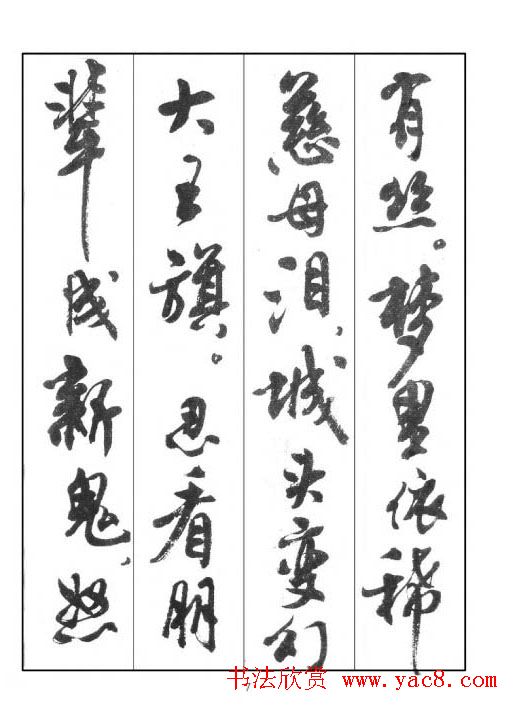 有丝。梦里依稀
慈母泪，城头变幻
大王旗。忍看朋
辈成新鬼，怒
书法欣赏 www.yac8.com